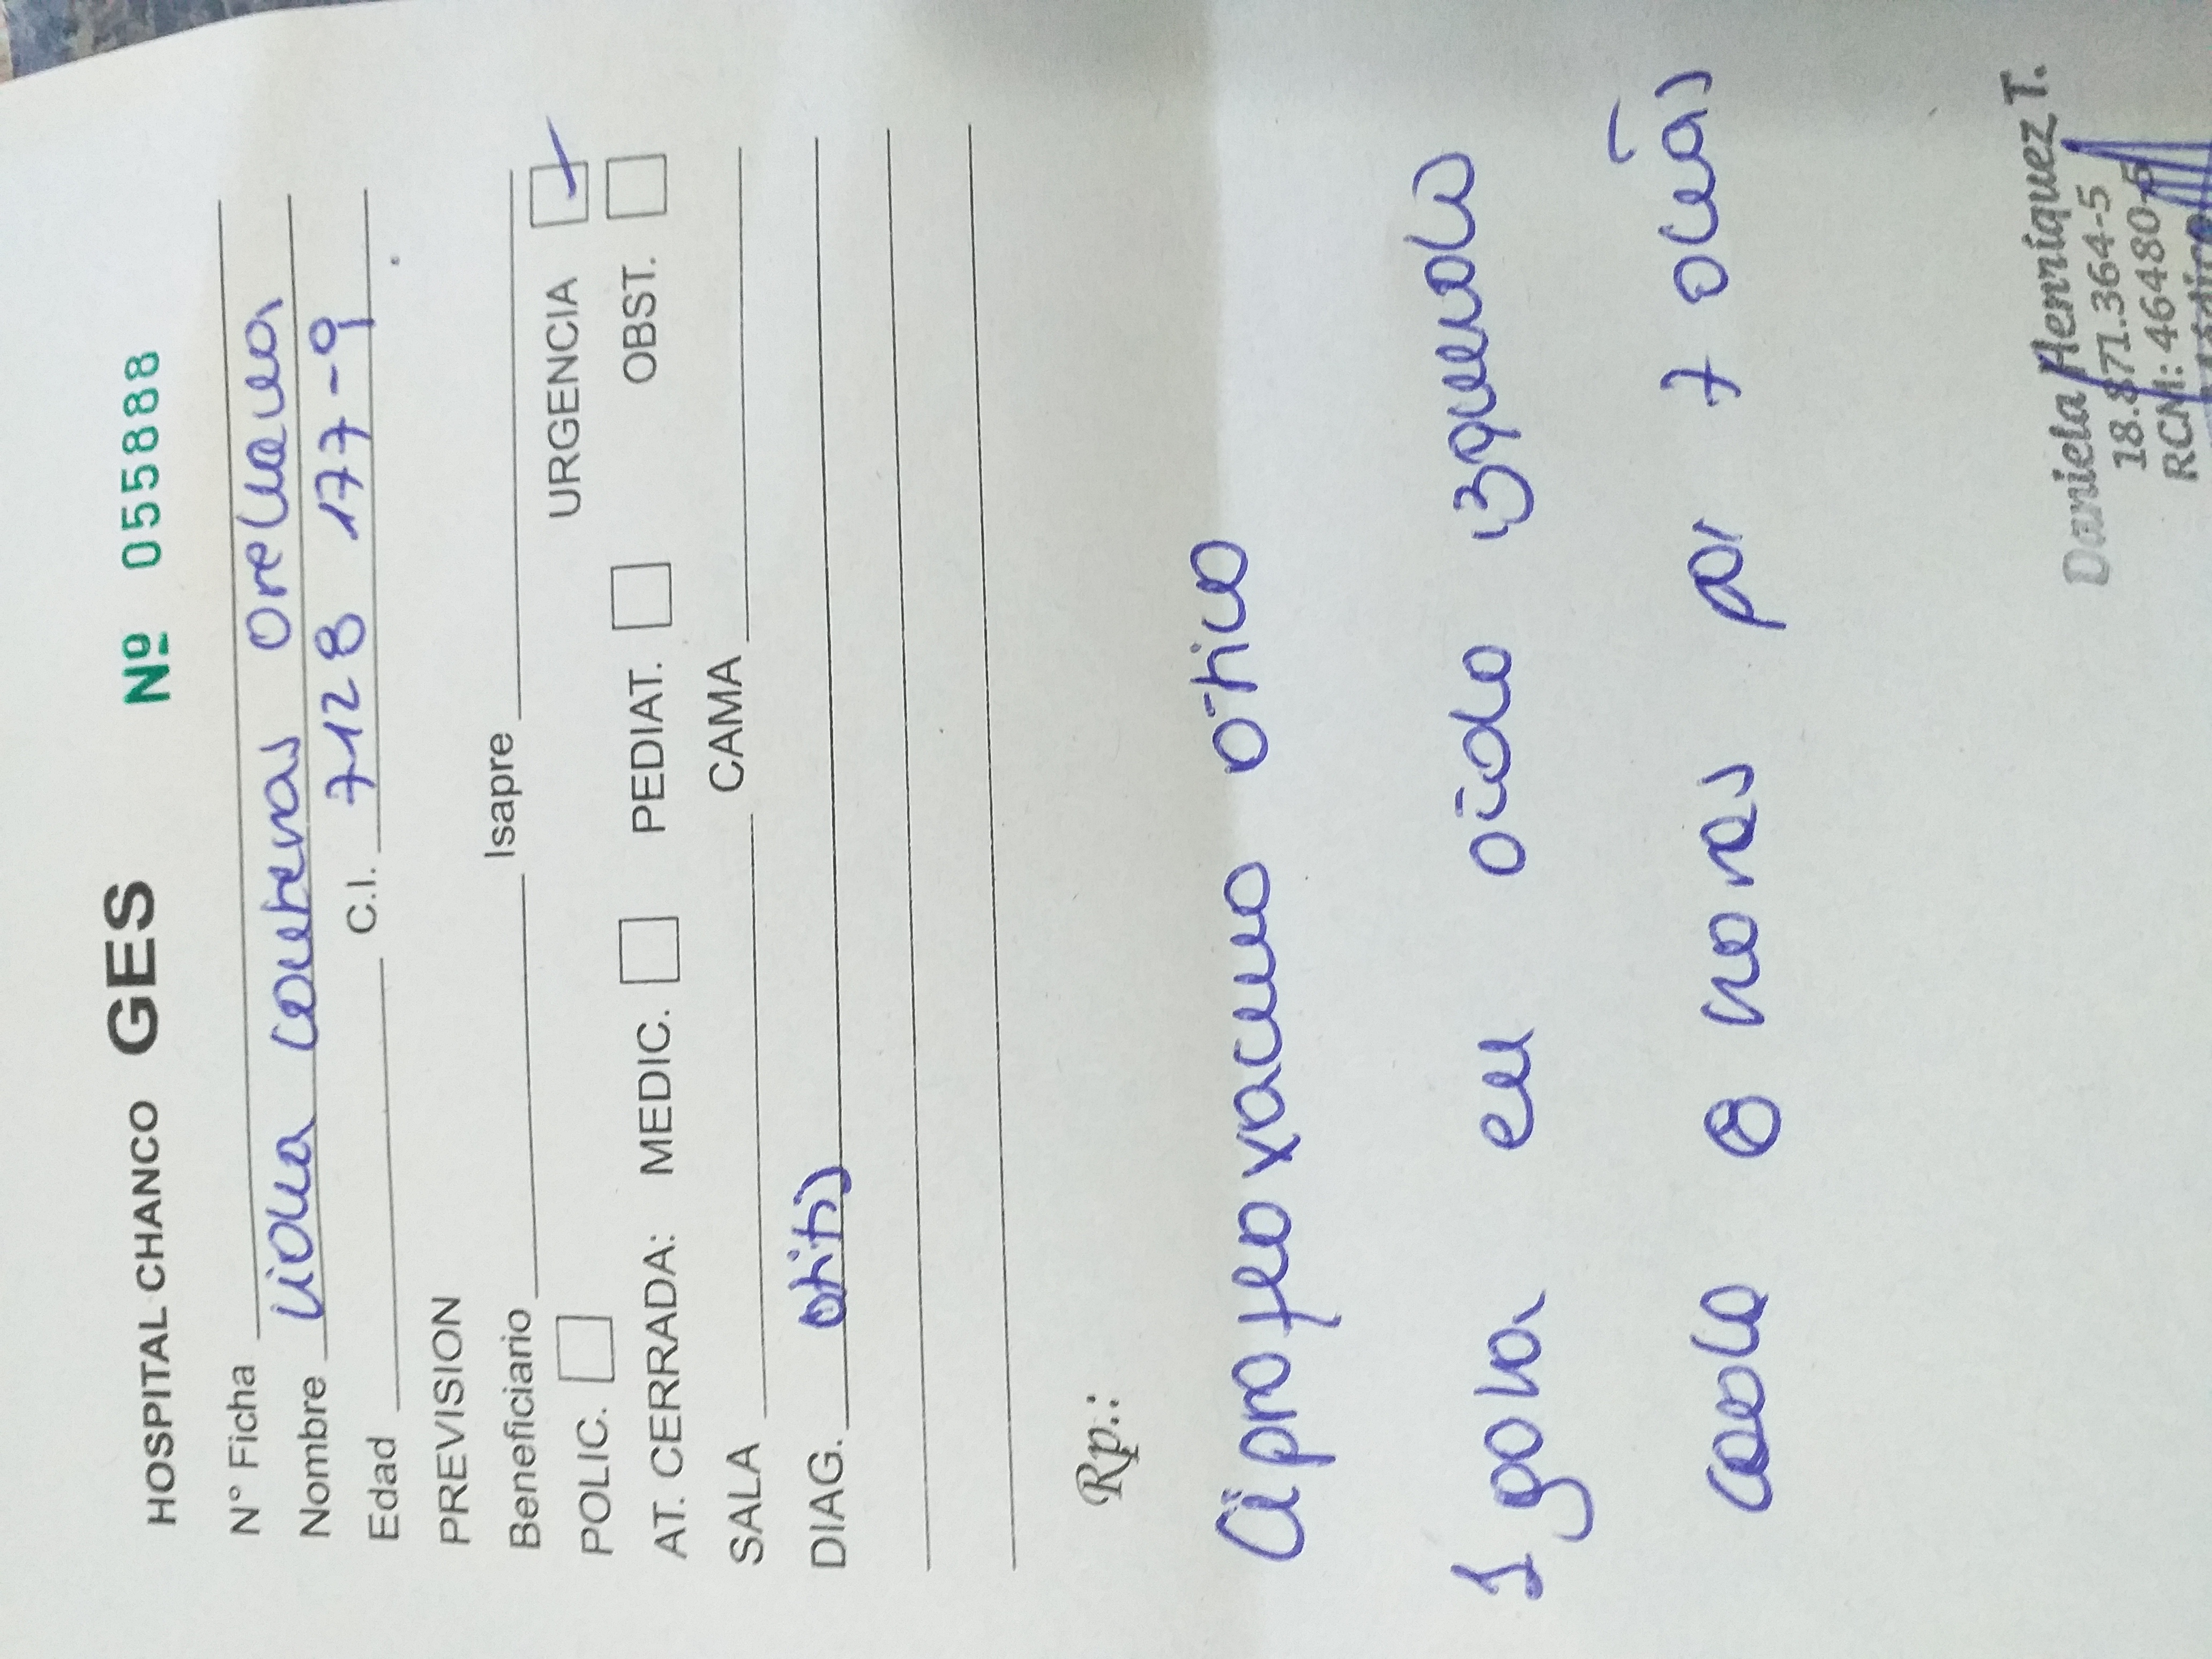 HOSPITAL CHANCO GES Nº 055888
N° Ficha
Nombre Liona Contreras Orellana
Edad C.I. 7128 177-9
PREVISION
Beneficiario Isapre
POLIC. URGENCIA
AT. CERRADA: MEDIC. PEDIAT. OBST.
SALA CAMA
DIAG. otitis
Rp.:
Ciprofloxacino ótico
1 gota en oido izquierdo
cada 8 horas por 7 días
Daniela Henríquez T.
18.871.364-5
RCM: 46480-5